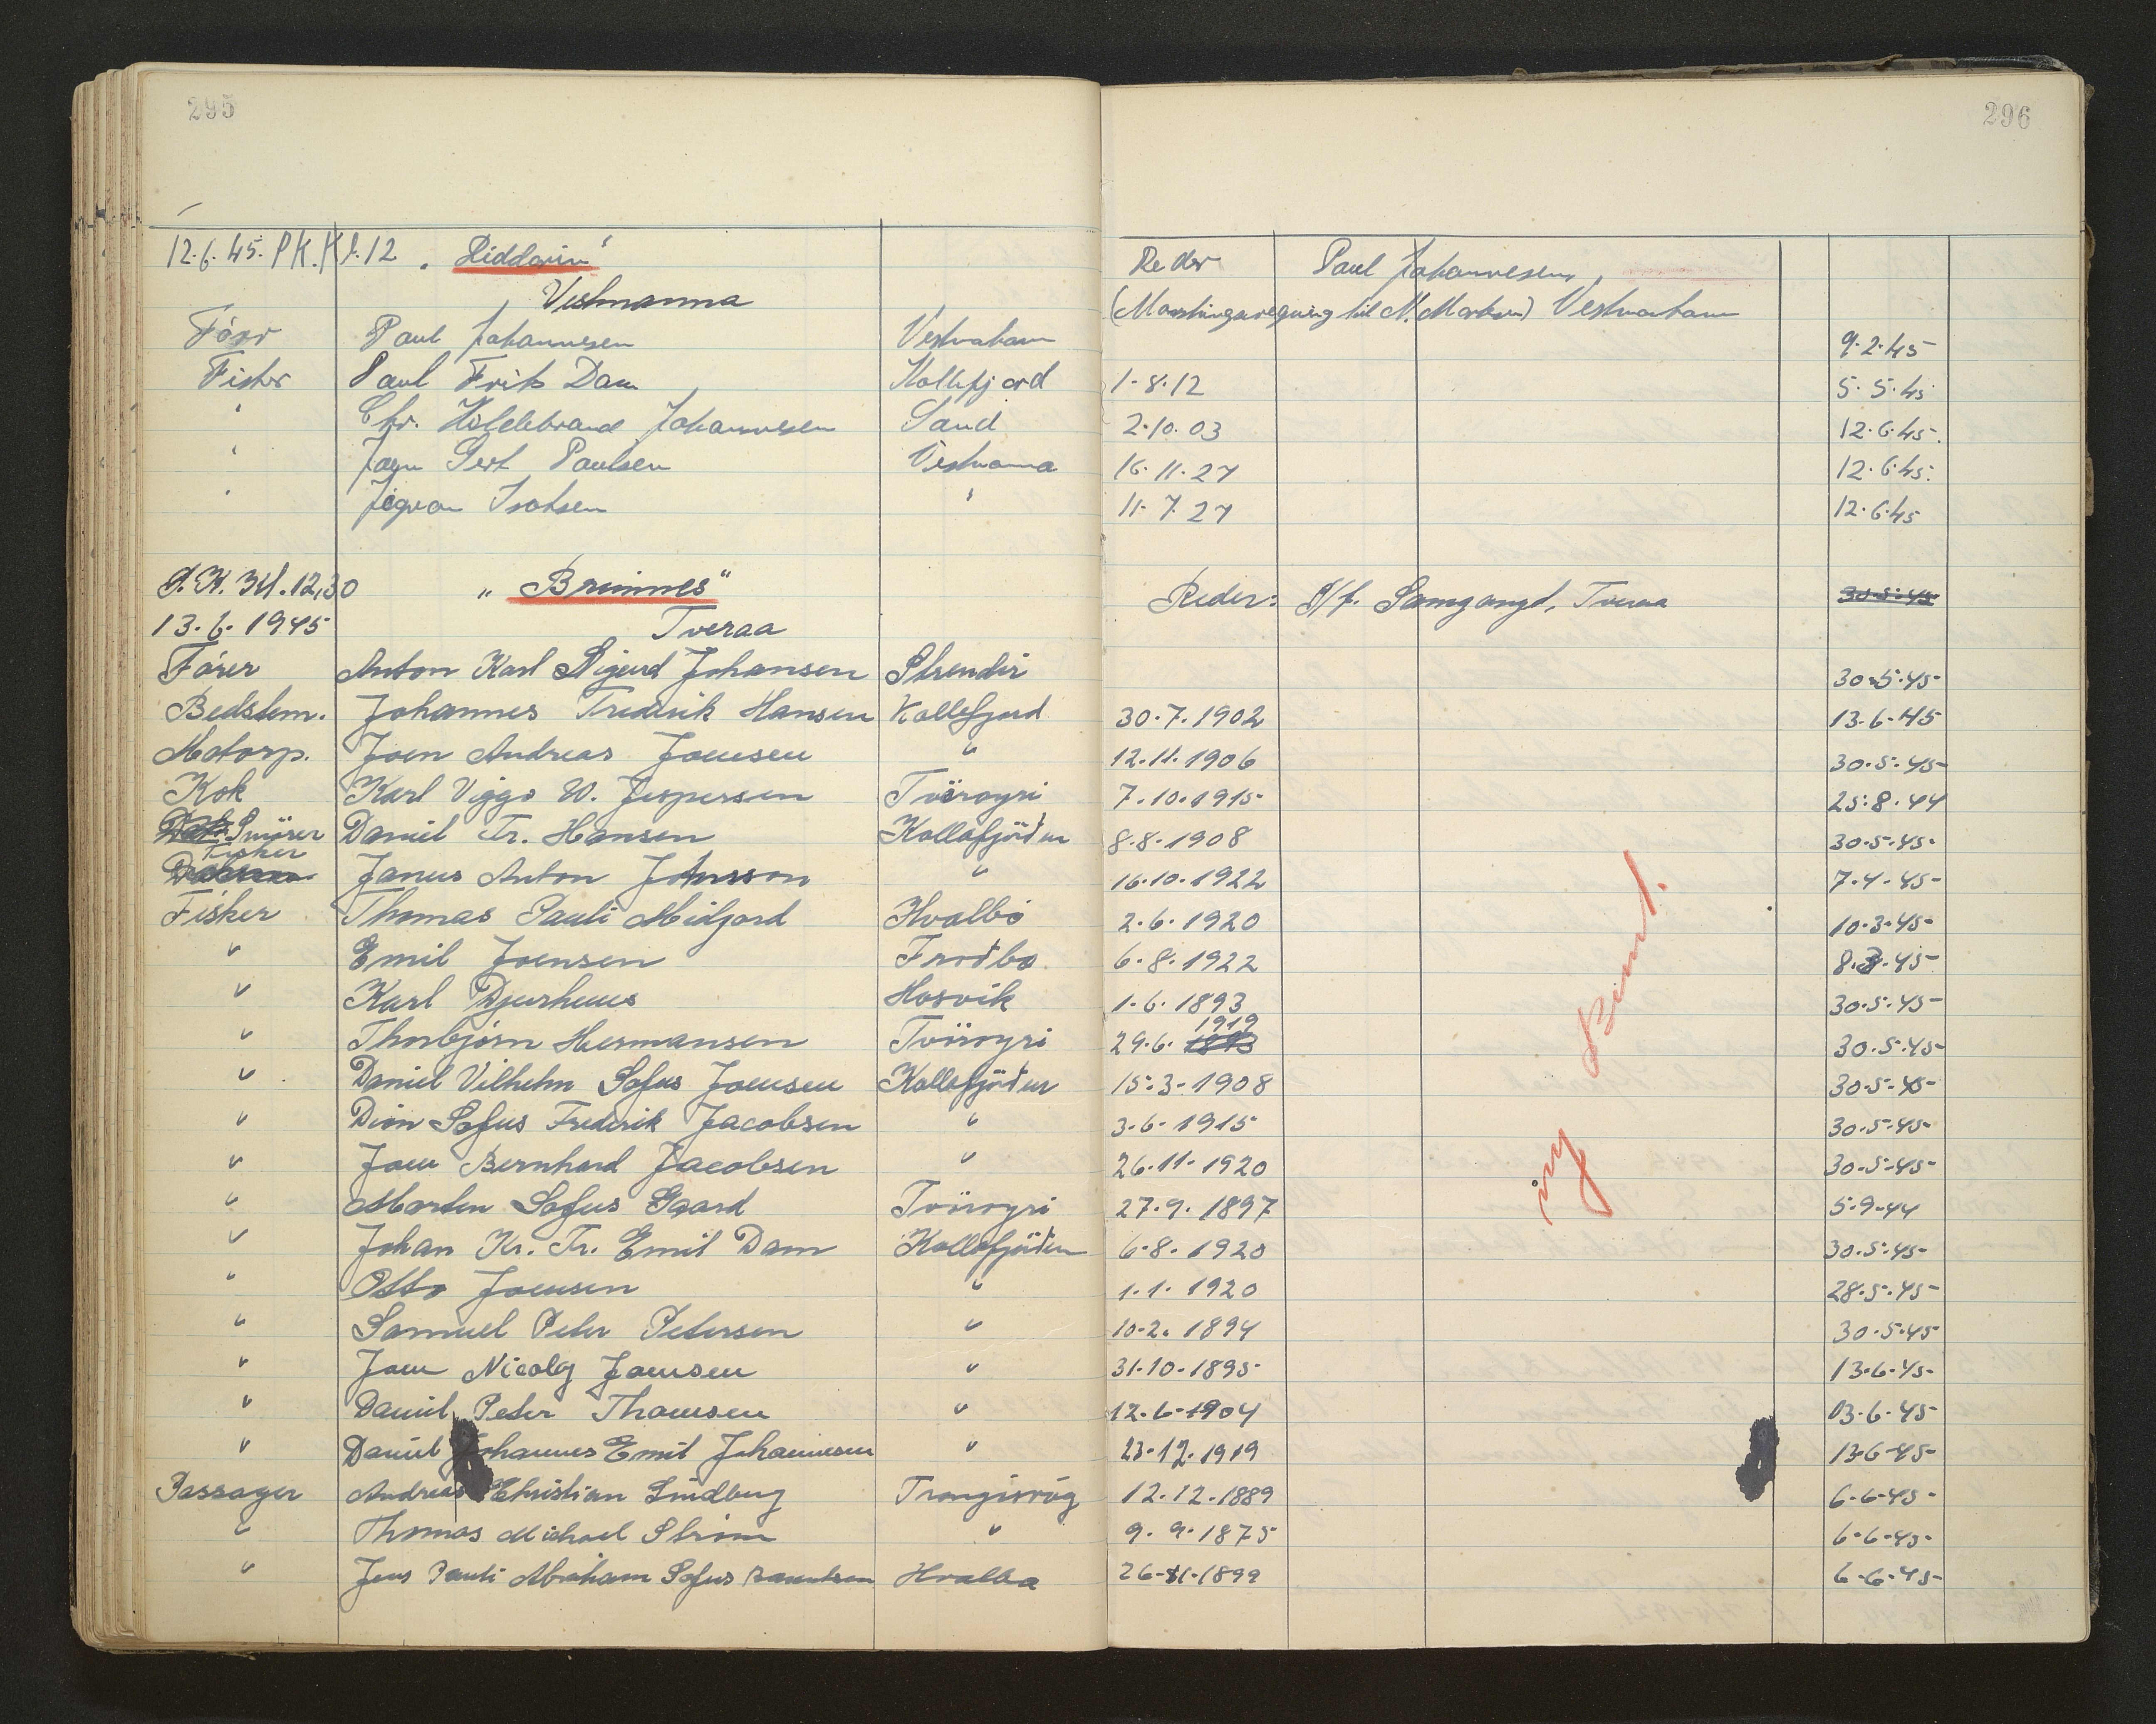 295 296
12.6.45. P.K. Kl. 12 „Riddarin“ Reder Paul Johannesen,
Vestmanna ( til M. Morten) Vestmanhavn
Förer Paul Johannesen Vestmanhavn 9.2.45
Fisker Paul Frits Dam Kollefjord 1.8.12 5.5.45
" Chr. Hildebrand Johannesen Sand 2.10.03 12.6.45.
" Gert Paulsen Vestmanna 16.11.27 12.6.45.
" Isaksen " 11.7.27 12.6.45
P.K. Kl. 12,30 „Brimnes“ Reder: P/f. Samgangd, Tveraa 30.5.45
13.6.1945 Tveraa
Förer Anton Karl Sigurd Johansen Strendir 30.5.45-
Bedstem. Johannes Frederik Hansen Kollefjord 30.7.1902 13.6.45
Motorp. Joen Andreas Joensen " 12.11.1906 30.5.45-
Kok Karl Viggo W. Jespersen Tvöroyri 7.10.1915 25.8.44
Smörer Daniel Fr. Hansen Kollafjördur 8.8.1908 30.5.45-
Fisker Janus Anton Johnsson " 16.10.1922 7.4.45-
Fisker Thomas Pauli Midjord Hvalbö 2.6.1920 10.3.45-
" Emil Joensen Frodbo 6.8.1922 8.3.45-
" Karl Djurhuus Hosvik 1.6.1893 30.5.45-
" Thorbjörn Hermansen Tvöroyri 29.6. 1919 30.5.45-
" Daniel Vilhelm Sofus Joensen Kollafjördur 15.3.1908 30.5.45-
" Dion Sofus Frederik Jacobsen " 3.6.1915 30.5.45-
" Joen Bernhard Jacobsen " 26.11.1920 30.5.45-
" Morten Sofus Gaard Tvöroyri 27.9.1897 5.9.44
" Johan Kr. Fr. Emil Dam Kollafjördur 6.8.1920 30.5.45-
" Otto Joensen " 1.1.1920 28.5.45-
" Samuel Peter Petersen " 10.2.1894 30.5.45
" Joen Nicolaj Joensen " 31.10.1895 13.6.45-
" Daniel Peter Thomsen " 12.6.1904 13.6.45-
" Daniel Johannes Emil Johannesen " 23.12.1919 13.6.45-
Passager Andreas Christian Lindberg Trongisvög 12.12.1889 6.6.45-
" Thomas Michael Ström " 9.9.1875 6.6.45-
" Jens Pauli Abraham Sofus Hvalba 26.11.1899 6.6.45-